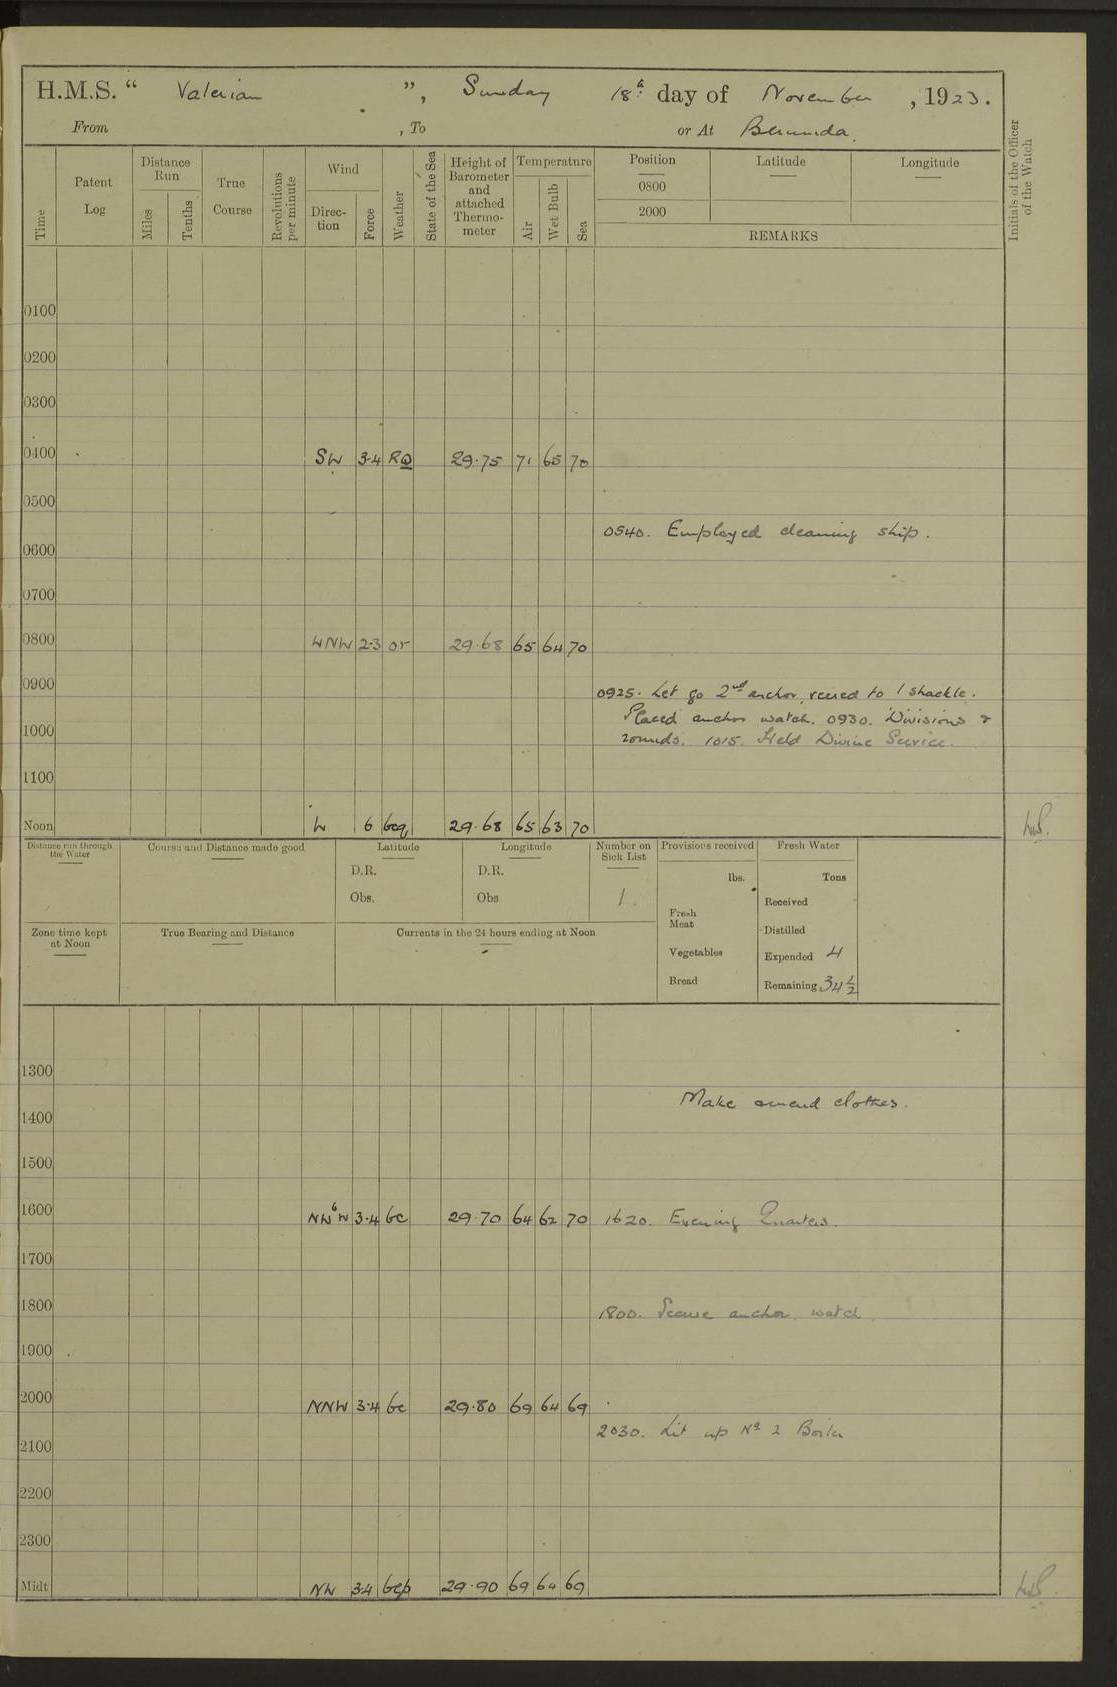 H.M.S. “ Valerian ”, Sunday 18th day of November, 1923.
From , To or At Bermuda.
Time Patent Log Distance Run Miles Tenths True Course Revolutions per minute Wind Direc-tion Force Weather State of the Sea Height of Barometer and attached Thermo-meter Temperature Air Wet Bulb Sea Position 0800 2000 Latitude Longitude Initials of the Officer of the Watch
REMARKS
0100
0200
0300
0400 SW 3·4 RQ 29·75 71 65 70
0500
0540. Employed cleaning ship.
0600
0700
0800 WNW 2·3 or 29·68 65 64 70
0900
0925. Let go 2nd anchor, veered to 1 shackle.
Placed anchor watch. 0930. Divisions &
1000 rounds. 1015. Held Divine Service.
1100
Noon W 6 bcq 29·68 65 63 70
Distance run through the Water Course and Distance made good Latitude Longitude Number on Sick List Provisions received Fresh Water
D.R. D.R. lbs. Tons
Obs. Obs. 1. Received
Fresh Meat
Distilled
Zone time kept at Noon True Bearing and Distance Currents in the 24 hours ending at Noon
Vegetables Expended 4
Bread Remaining 34½
1300
Make amend clothes.
1400
1500
1600 NW6W 3·4 bc 29·70 64 62 70 1620. Evening Quarters.
1700
1800 1800. Secure anchor watch
1900
2000 NNW 3·4 bc 29·80 69 64 69
2030. Lit up No 2 Boiler
2100
2200
2300
Midt NW 3·4 bcp 29·90 69 64 69